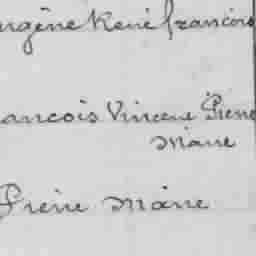 ugène René françois
ancois Vincent Pierre
Marie
Pierre Marie